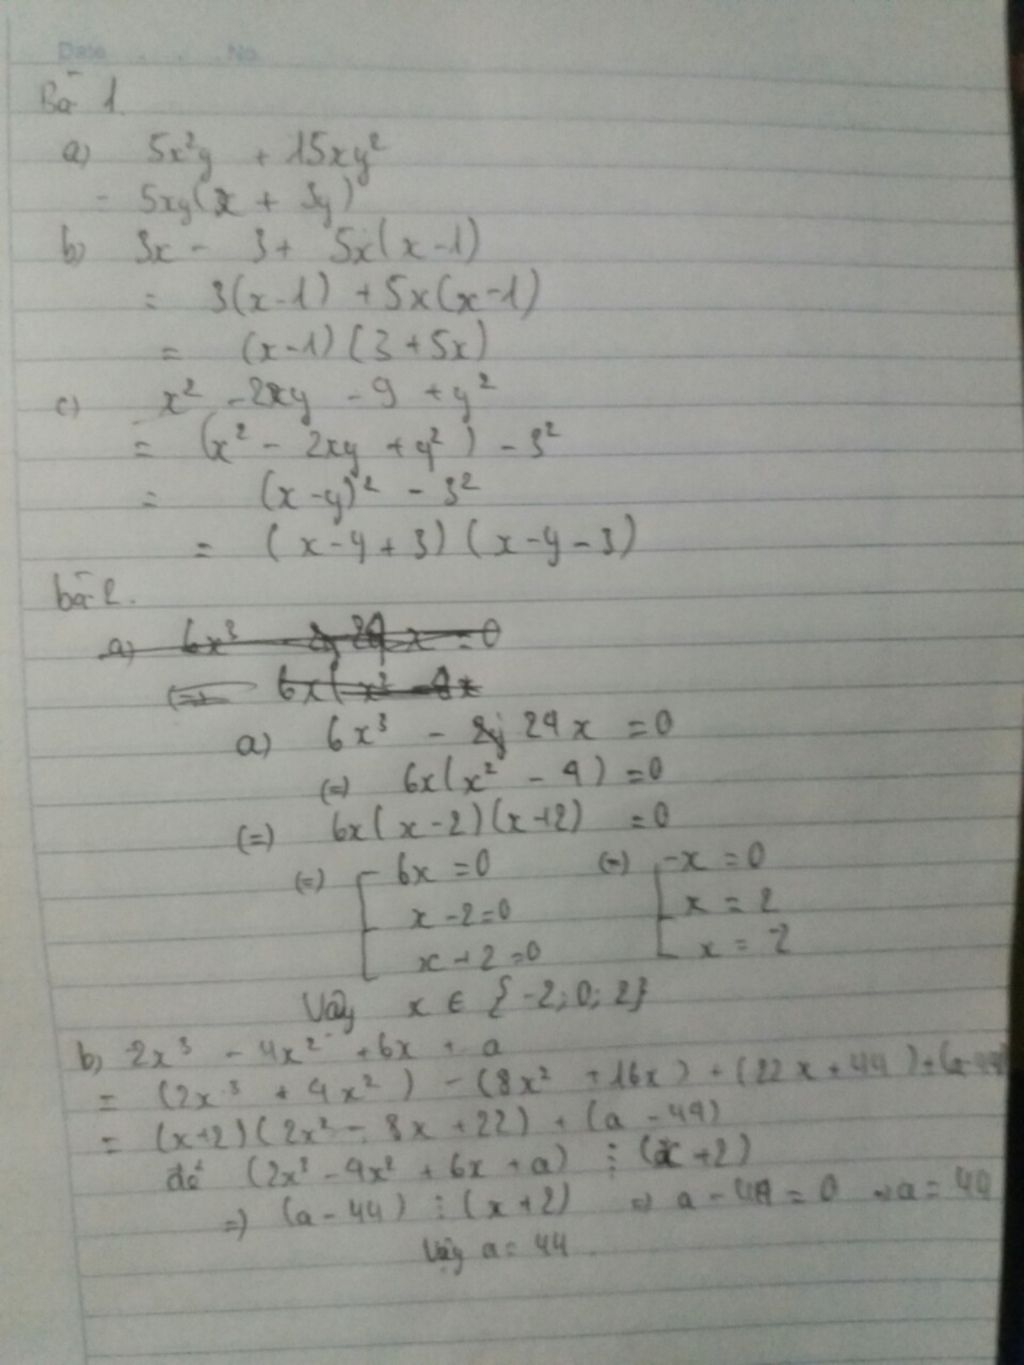 Date . . . No
Bài 1.
a) 5x²y + 15xy²
= 5xy(x + 3y)
b) 3x - 3 + 5x(x-1)
= 3(x-1) + 5x(x-1)
= (x-1)(3+5x)
c) x² - 2xy - 9 + y²
= (x² - 2xy + y²) - 3²
= (x-y)² - 3²
= (x-y+3)(x-y-3)
bài 2.
a) 6x³ - 24x = 0
(=) 6x(x²
a) 6x³ - 24x = 0
(=) 6x(x² - 4) = 0
(=) 6x(x-2)(x+2) = 0
(=) [ 6x = 0 (=) [ x = 0
x - 2 = 0 x = 2
x + 2 = 0 x = -2
Vậy x ∈ {-2; 0; 2}
b) 2x³ - 4x² + 6x + a
= (2x³ + 4x²) - (8x² + 16x) + (22x + 44) + (a-44)
= (x+2)(2x² - 8x + 22) + (a - 44)
để (2x³ - 4x² + 6x + a) ⋮ (x+2)
=) (a - 44) ⋮ (x+2) => a - 44 = 0 => a = 44
Vậy a = 44.